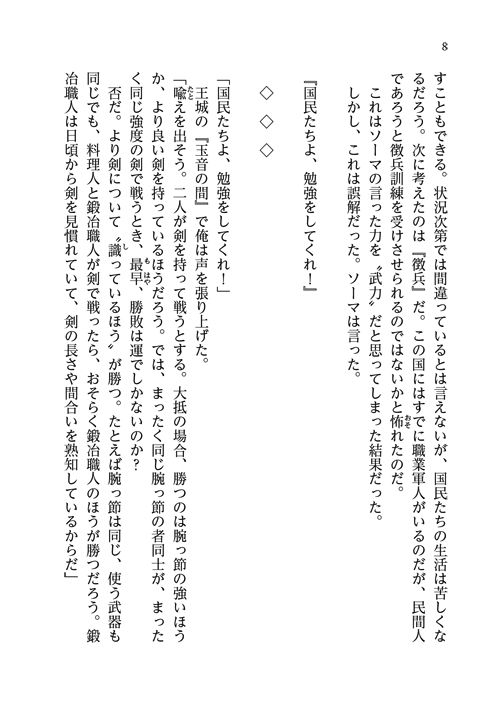 8
すこともできる。状況次第では間違っているとは言えないが、国民たちの生活は苦しくな
るだろう。次に考えたのは『徴兵』だ。この国にはすでに職業軍人がいるのだが、民間人
であろうと徴兵訓練を受けさせられるのではないかと怖れたのだ。
これはソーマの言った力を〝武力〟だと思ってしまった結果だった。
しかし、これは誤解だった。ソーマは言った。
『国民たちよ、勉強をしてくれ！』
◇ ◇ ◇
「国民たちよ、勉強をしてくれ！」
王城の『玉音の間』で俺は声を張り上げた。
「喩えを出そう。二人が剣を持って戦うとする。大抵の場合、勝つのは腕っ節の強いほう
か、より良い剣を持っているほうだろう。では、まったく同じ腕っ節の者同士が、まった
く同じ強度の剣で戦うとき、最早、勝敗は運でしかないのか？
否だ。より剣について〝識っているほう〟が勝つ。たとえば腕っ節は同じ、使う武器も
同じでも、料理人と鍛冶職人が剣で戦ったら、おそらく鍛冶職人のほうが勝つだろう。鍛
冶職人は日頃から剣を見慣れていて、剣の長さや間合いを熟知しているからだ」